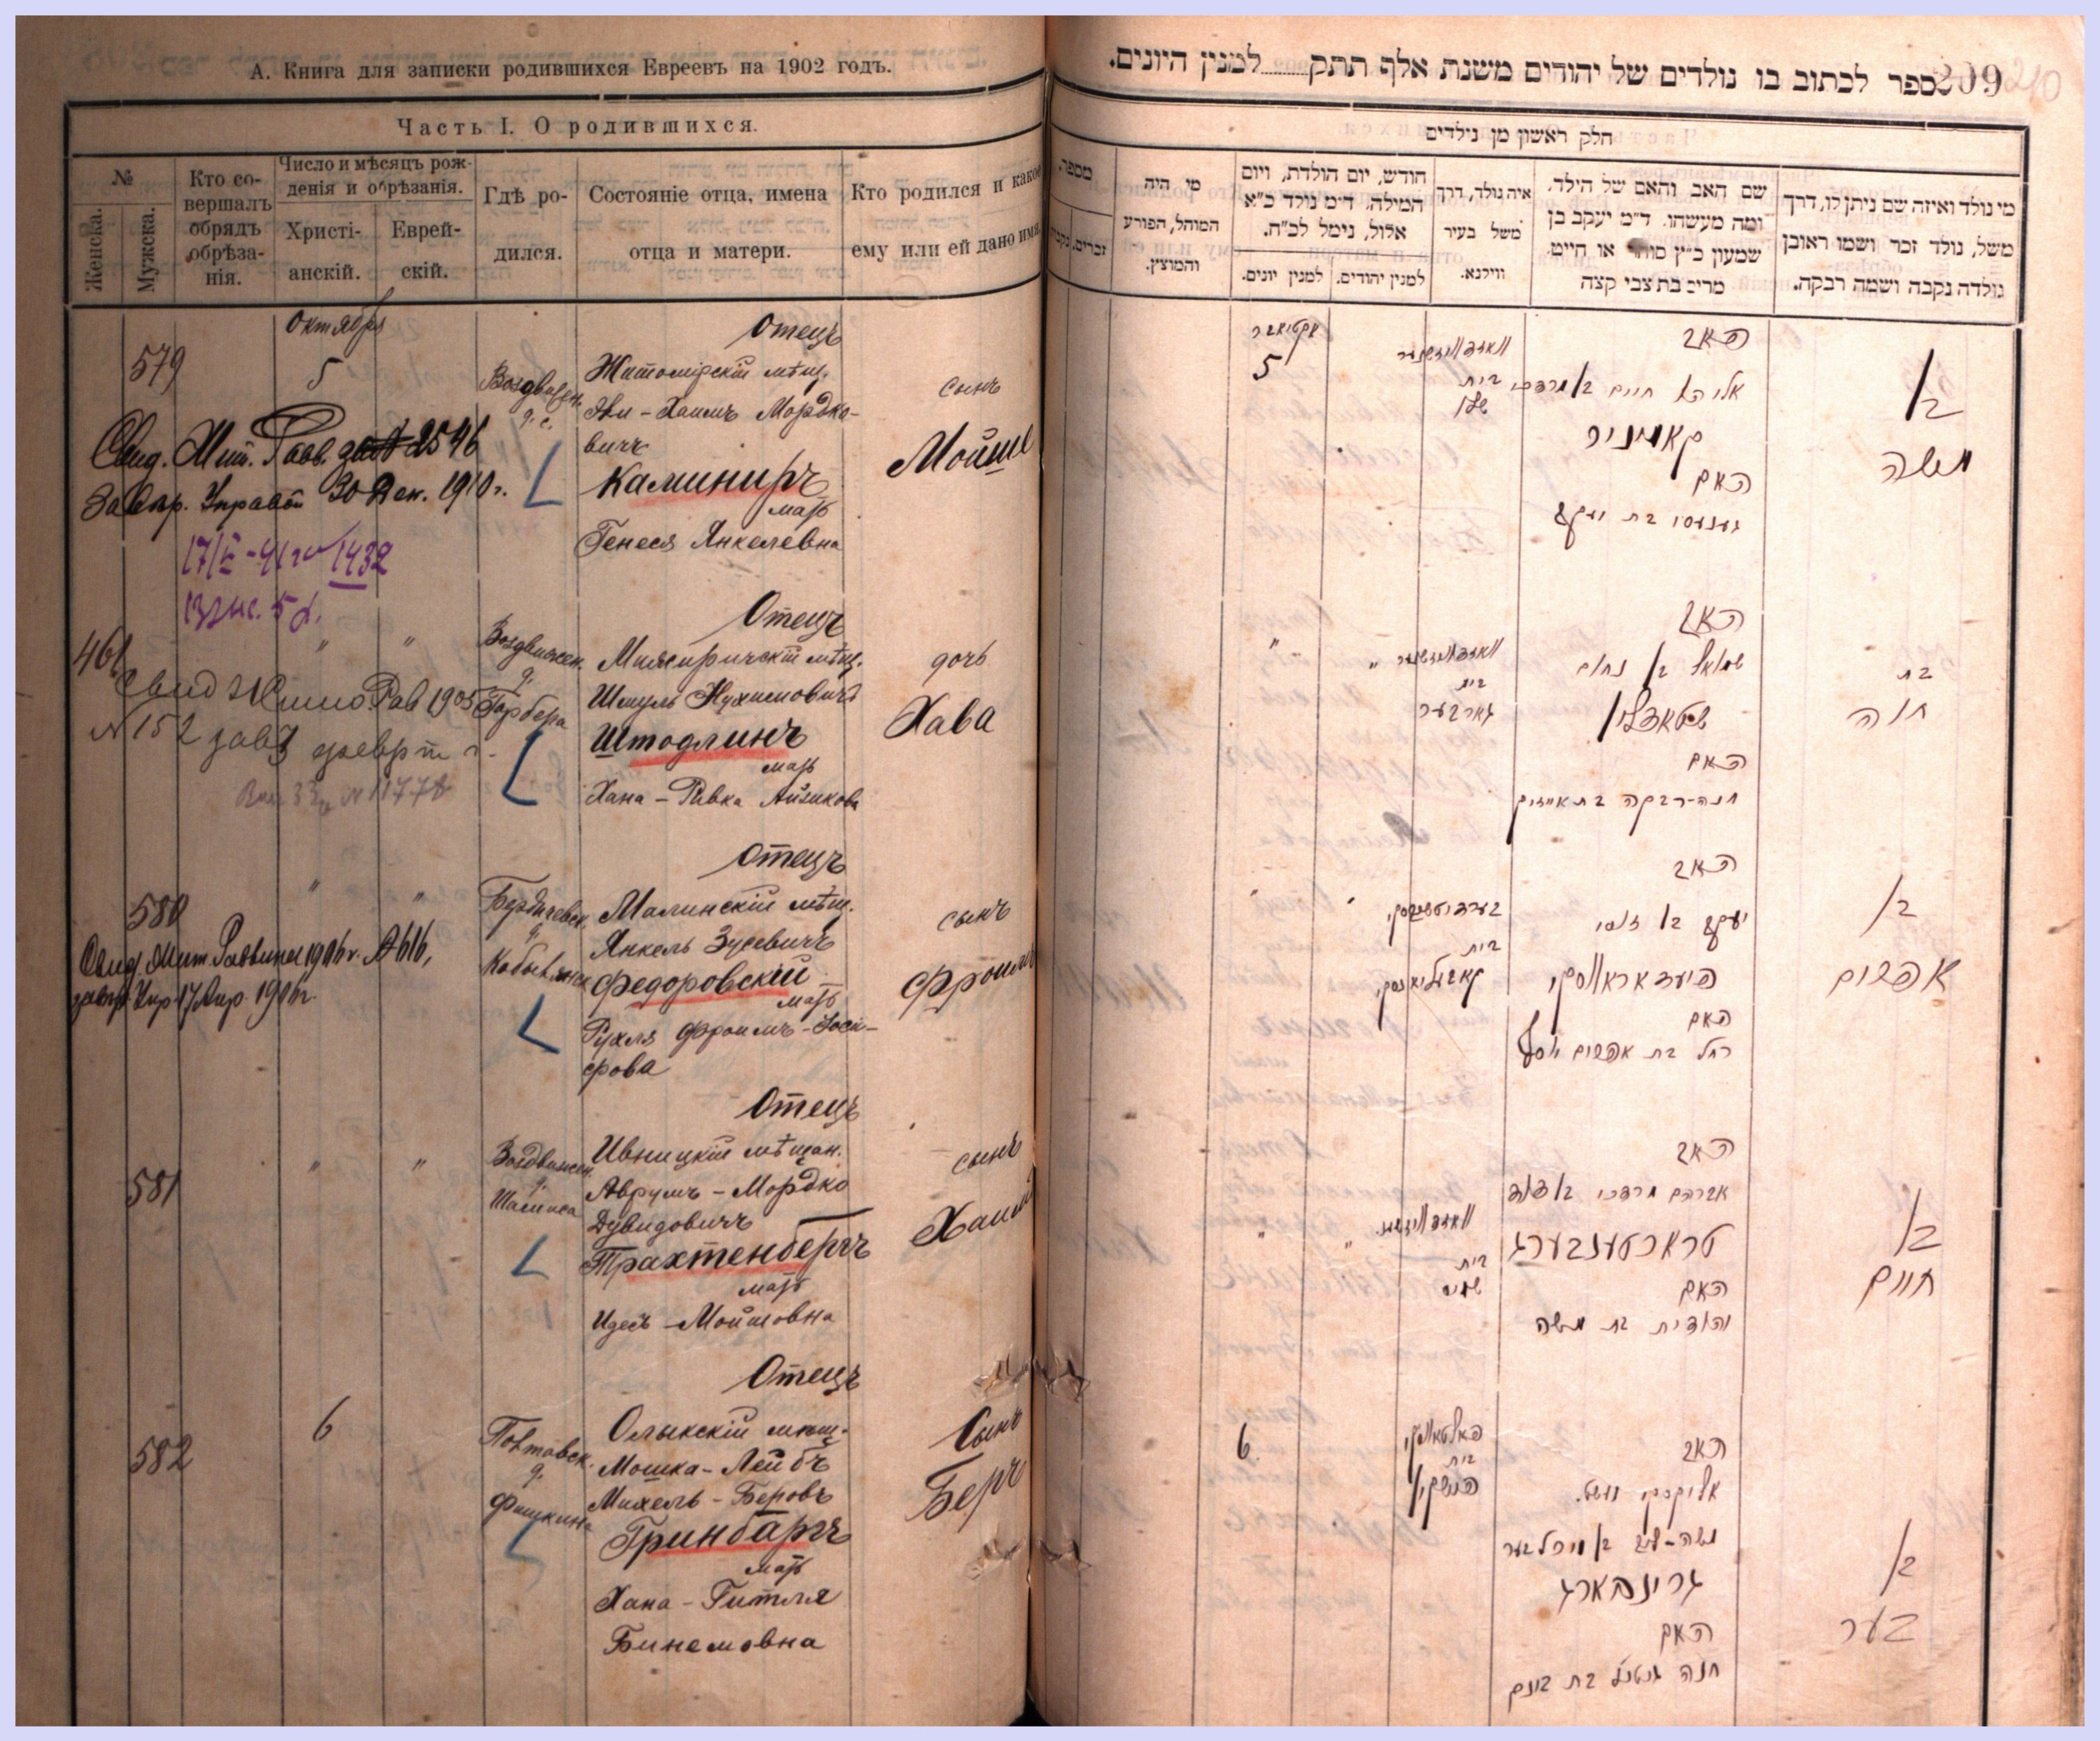 А. Книга для записки родившихся Евреевъ на 1902 годъ.
Часть I. О родившихся.
№
Женска.
Мужска.
Кто со-
вершалъ
обрядъ
обрѣза-
нія.
Число и мѣсяцъ рож-
денія и обрѣзанія.
Христі-
анскій.
Еврей-
скій.
Гдѣ ро-
дился.
Состояніе отца, имена
отца и матери.
Кто родился и какое
ему или ей дано имя.
Октября
579
5
Воздвижен.
Отецъ
Житомірскій мѣщ.
Эли-Хаимъ Мордко-
вичъ
Каминиръ
мать
Генеся Янкелевна
сынъ
Мойше
Свид. Жит. Равв. 2546
30 Дек. 1910 г.
1432
461
"
"
Воздвижен.
д.
Гарбера
Отецъ
Межиричскій мѣщ.
Шмуль Нухимовичъ
Штадлинъ
мать
Хана-Ривка Айзикова
дочь
Хава
Рав 1905
N 152
580
"
"
Бердичевск.
д.
Отецъ
Малинскій мѣщ.
Янкель Зусевичъ
Федоровскій
мать
Рухля Фроимъ-Іоси-
фова
сынъ
Фроимъ
Свид. Жит. Раввина 1906 г. № 616,
17 Апр. 1906 г.
581
"
"
Воздвижен.
д.
Отецъ
Ивницкій мѣщан.
Аврумъ-Мордко
Дувидовичъ
Трахтенбергъ
мать
Идесъ-Мойшовна
сынъ
Хаимъ
582
6
Полтавск.
д.
Фишкина
Отецъ
Олыкскій мѣщ.
Мошка-Лейбъ
Михель-Беровъ
Гринбаргъ
мать
Хана-Гитля
Бинемовна
Сынъ
Беръ
ספר לכתוב בו נולדים של יהודים משנת אלף תתק למנין היונים.
209
210
חלק ראשון מן נילדים
מי נולד ואיזה שם ניתן לו, דרך
משל, נולד זכר ושמו ראובן
נולדה נקבה ושמה רבקה.
שם האב והאם של הילד,
ומה מעשהו. ד״מ יעקב בן
שמעון כ״ץ סוחר או חייט.
מרים בת צבי קצה
איה נולד, דרך
משל בעיר
ווילנא.
חודש, יום הולדת, ויום
המילה. ד״מ נולד כ״א
אלול, נימל לכ״ח.
למנין יהודים.
למנין יונים.
מי היה
המוהל, הפורע
והמוצץ.
מספר.
זכרים.
נקבות
בן
משה
האב
אליהו חיים בן מרדכי
קאמיניר
האם
גענעסי בת יעקב
בית
אקטיאבר
5
בת
חוה
האב
שמואל בן נחום
שטאדלין
האם
חנה-רבקה בת אייזיק
בית
גארבער
"
"
בן
אפרים
האב
יעקב בן זוסי
פיעדאראווסקי
האם
רחל בת אפרים יוסף
בית
בן
חיים
האב
אברהם מרדכי בן דוד
טראכטענבערג
האם
יהודית בת משה
בית
"
"
בן
בער
האב
משה-ליב בן מיכל בער
גרינבארג
האם
חנה גיטל בת בונם
פאלטאווסקי
בית
פישקין
6